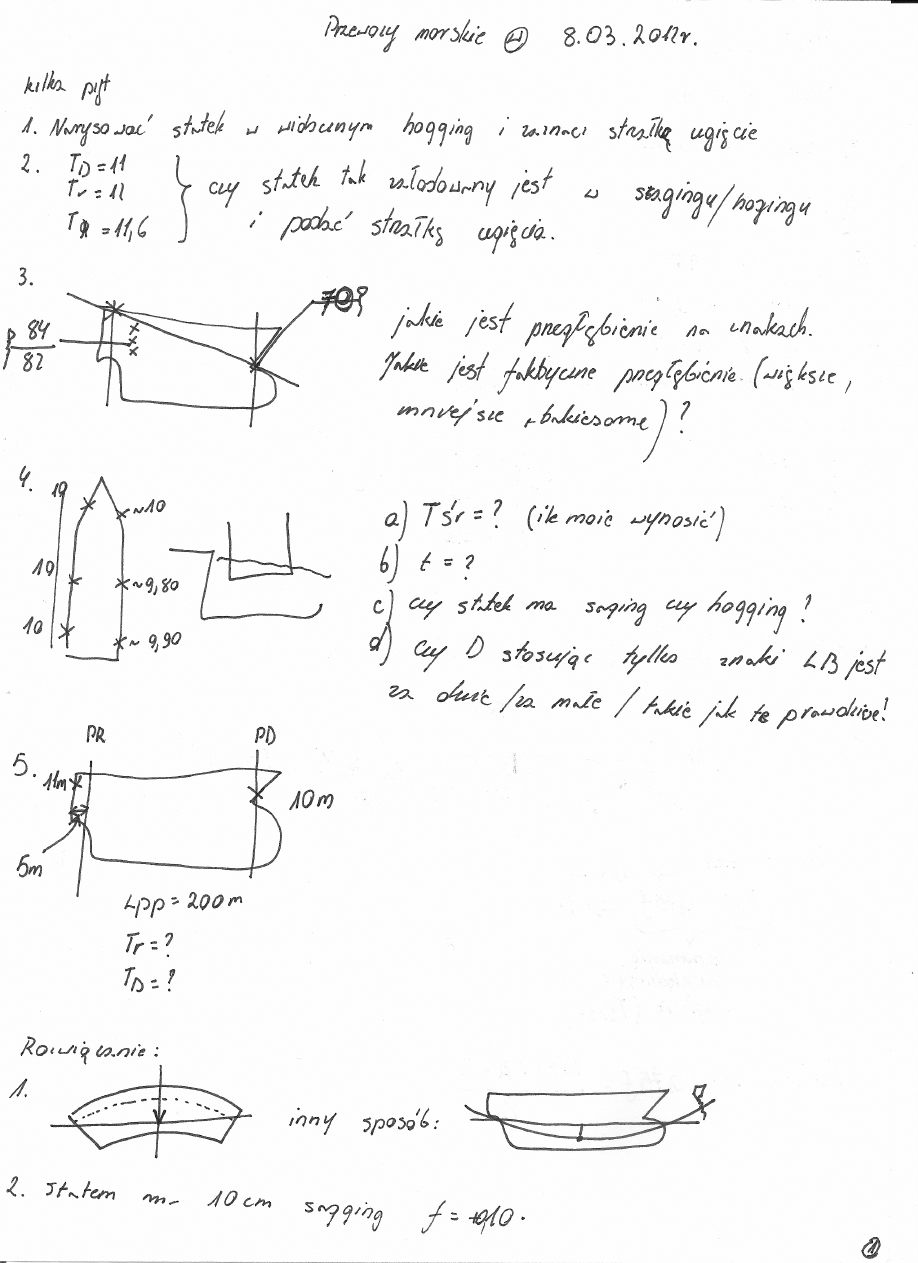 Przewozy morskie (W) 8.03.2012r.
kilka pyt
1. Narysować statek w widocznym hogging i zaznacz strzałką ugięcie
2. TD = 11
Tr = 12
TR = 11,6
czy statek tak załadowany jest w saggingu/hogingu
i podać strzałkę ugięcia.
3.
84
82
jakie jest przegłębienie na znakach.
Jakie jest faktyczne przegłębienie. (większe,
mniejsze, takie samo)?
4.
10
~10
10
~9,80
10
~9,90
a) Tśr = ? (ile może wynosić)
b) t = ?
c) czy statek ma saging czy hogging?
d) czy D stosując tylko znaki LB jest
za duże / za małe / takie jak te prawdziwe!
PR
PD
5.
11m
10m
5m
Lpp = 200m
Tr = ?
TD = ?
Rozwiązanie:
1.
inny sposób:
2. statem ma 10cm sagging f = 0,10.
1